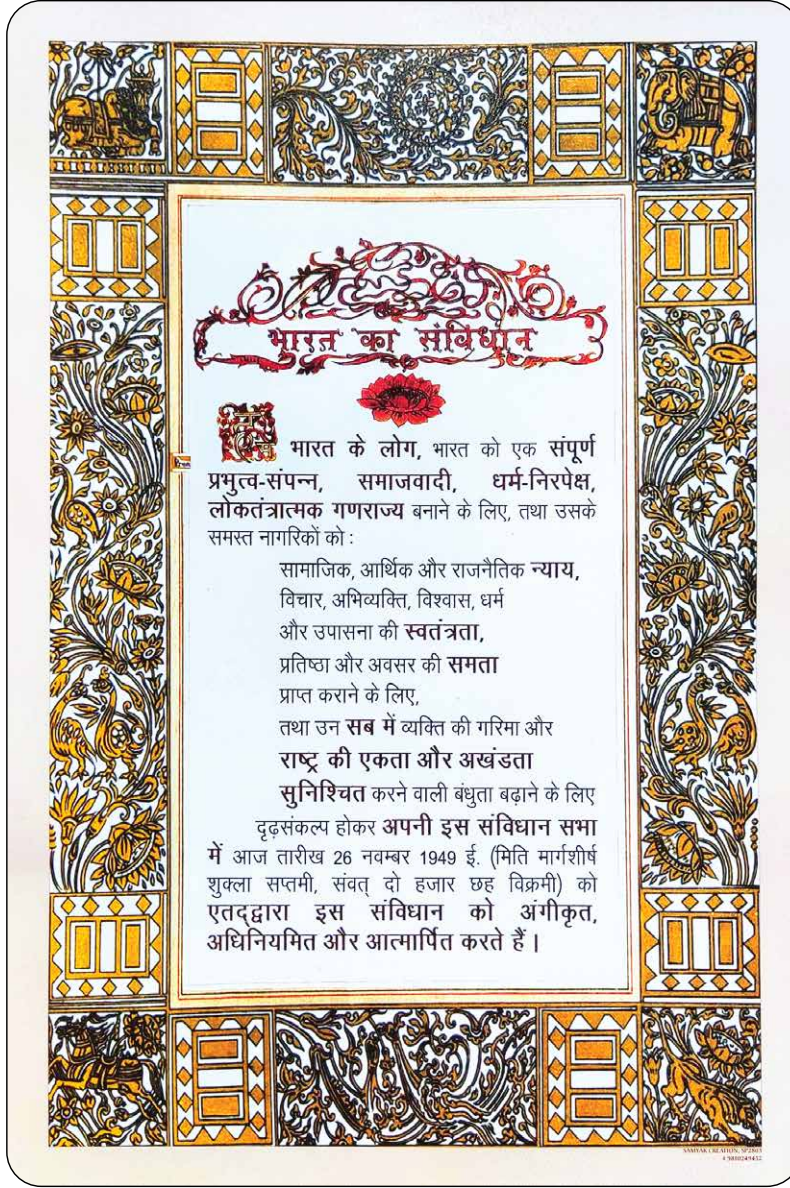 भारत का संविधान
हम भारत के लोग, भारत को एक संपूर्ण
प्रभुत्व-संपन्न, समाजवादी, धर्म-निरपेक्ष,
लोकतंत्रात्मक गणराज्य बनाने के लिए, तथा उसके
समस्त नागरिकों को :
सामाजिक, आर्थिक और राजनैतिक न्याय,
विचार, अभिव्यक्ति, विश्वास, धर्म
और उपासना की स्वतंत्रता,
प्रतिष्ठा और अवसर की समता
प्राप्त कराने के लिए,
तथा उन सब में व्यक्ति की गरिमा और
राष्ट्र की एकता और अखंडता
सुनिश्चित करने वाली बंधुता बढ़ाने के लिए
दृढ़संकल्प होकर अपनी इस संविधान सभा
में आज तारीख 26 नवम्बर 1949 ई. (मिति मार्गशीर्ष
शुक्ला सप्तमी, संवत् दो हजार छह विक्रमी) को
एतद्द्वारा इस संविधान को अंगीकृत,
अधिनियमित और आत्मार्पित करते हैं |
SAMYAK CREATION, SP2803